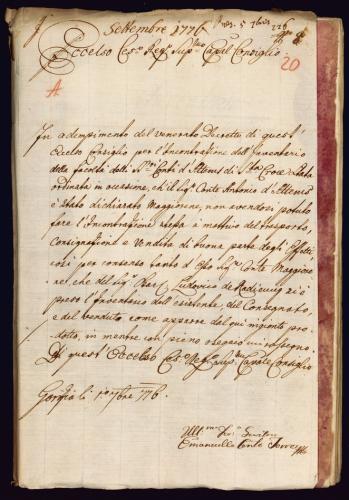 Settembre 1776
20
A
Eccelso Ces: Reg: Sup: Cap:al Consiglio
In adempimento del venerato Decretto di quest'
Eccelso Consiglio per l'Incontrazione dell'Inventario
della facoltà delli Conti d'Attems di S:ta Croce stata
ordinata in occasione, ch'il Sig: Conte Antonio d'Attems
è stato dichiarato Maggiorene, non avendosi potuto
fare l'Incontrazione stessa à mottivo del trasporto,
Consignazione e Vendita di buona parte degli Effetti,
così per consenso tanto d'Esso Sig: Conte Maggiore
ne, che del Sig: Ludovico de Radieucig si è
preso l'Inventario dell'esistente, del Consegnato,
e del venduto come appare dal qui ingionto pro
dotto, in mentre con pieno ossequio mi rassegno.
Di quest'Eccelso Ces: Reg: Sup: Capale Consiglio
Gorizia li 7bre 776.
Emanuelle Conte Torre